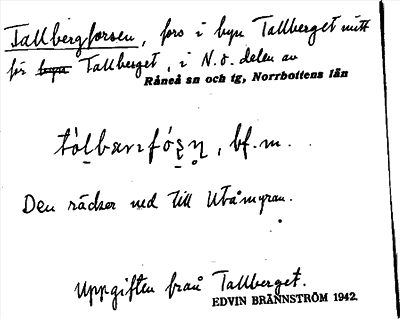 Tallbergforsen, fors i byn Tallberget mitt
för byn Tallberget, i N.O. delen av
Råneå sn och tg, Norrbottens län
bf. m.
Den räcker ned till Utåmyran.
Uppgiften från Tallberget.
EDVIN BRÄNNSTRÖM 1942.